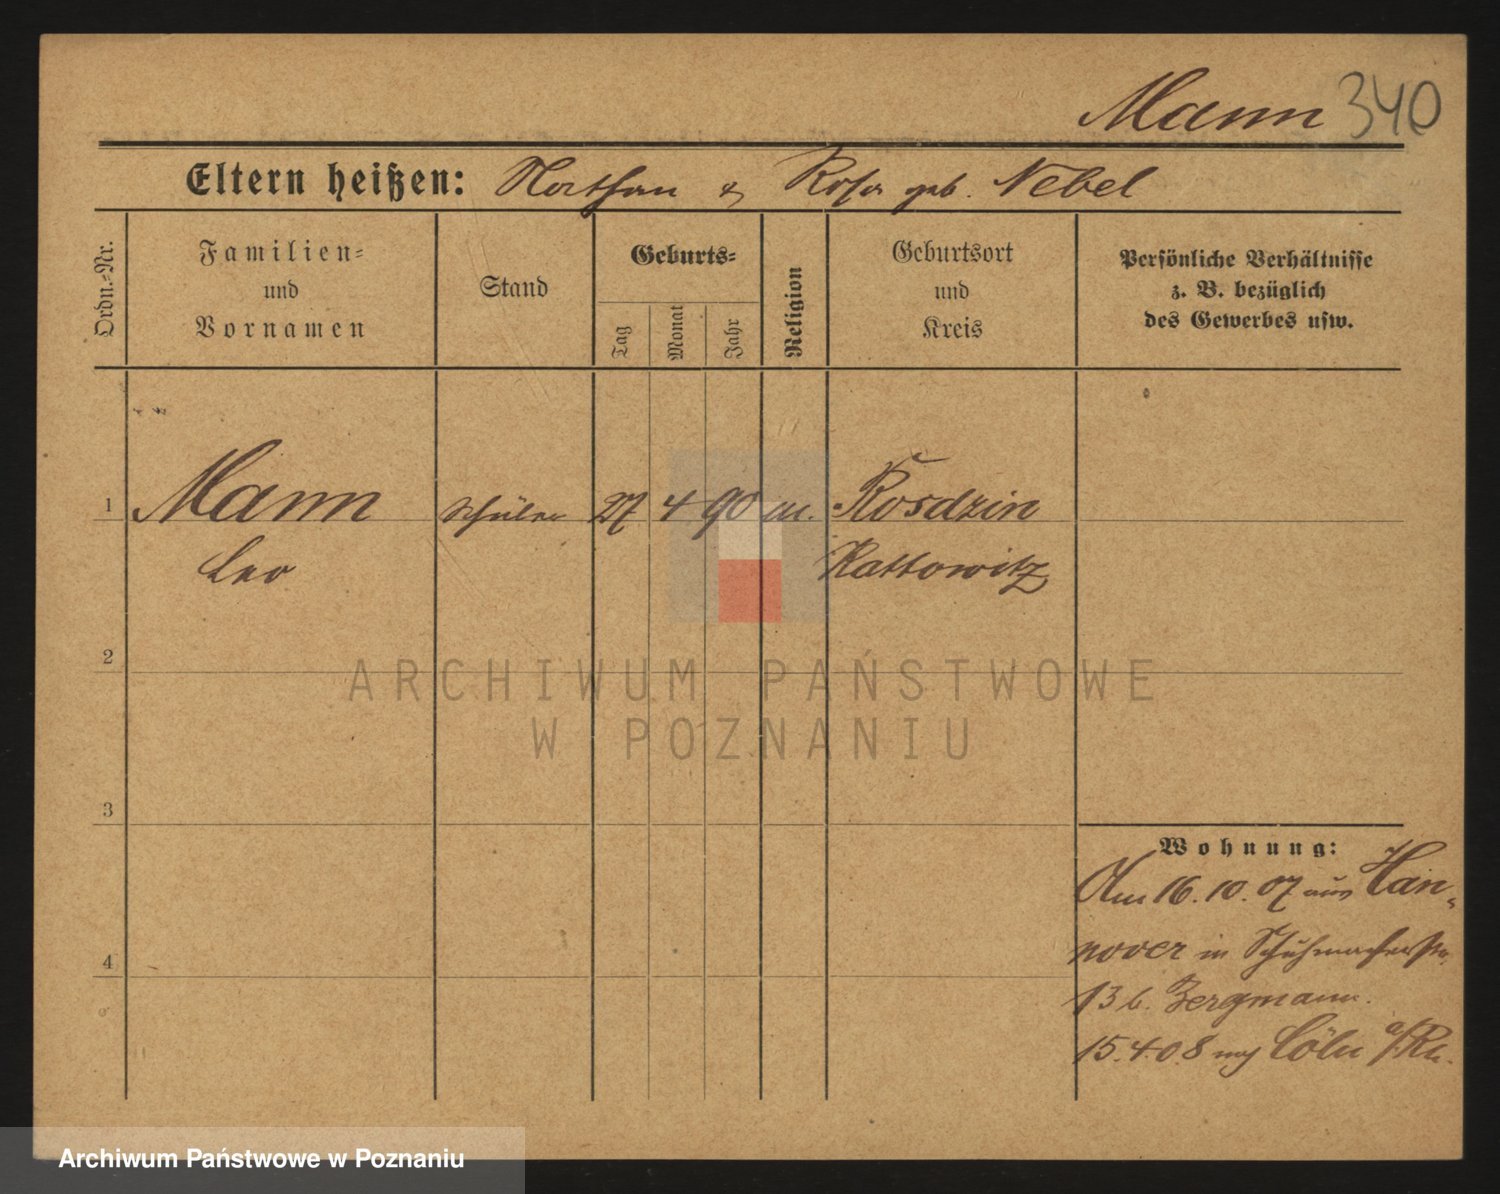 Mann 340
Eltern heißen: Nathan & Rosa geb. Nebel
Ordn.-Nr.
Familien-
und
Vornamen
Stand
Geburts-
Tag
Monat
Jahr
Religion
Geburtsort
und
Kreis
Persönliche Verhältnisse
z. B. bezüglich
des Gewerbes usw.
1 Mann Schüler 27 4 90 m. Rosdzin
Leo Kattowitz
2
ARCHIWUM PAŃSTWOWE
W POZNANIU
3
Wohnung:
Am 16.10.07 aus Han-
nover in Schuhmacherstr.
4
13 b. Bergmann.
15.4.08 nach Cöln a/Rh.
Archiwum Państwowe w Poznaniu